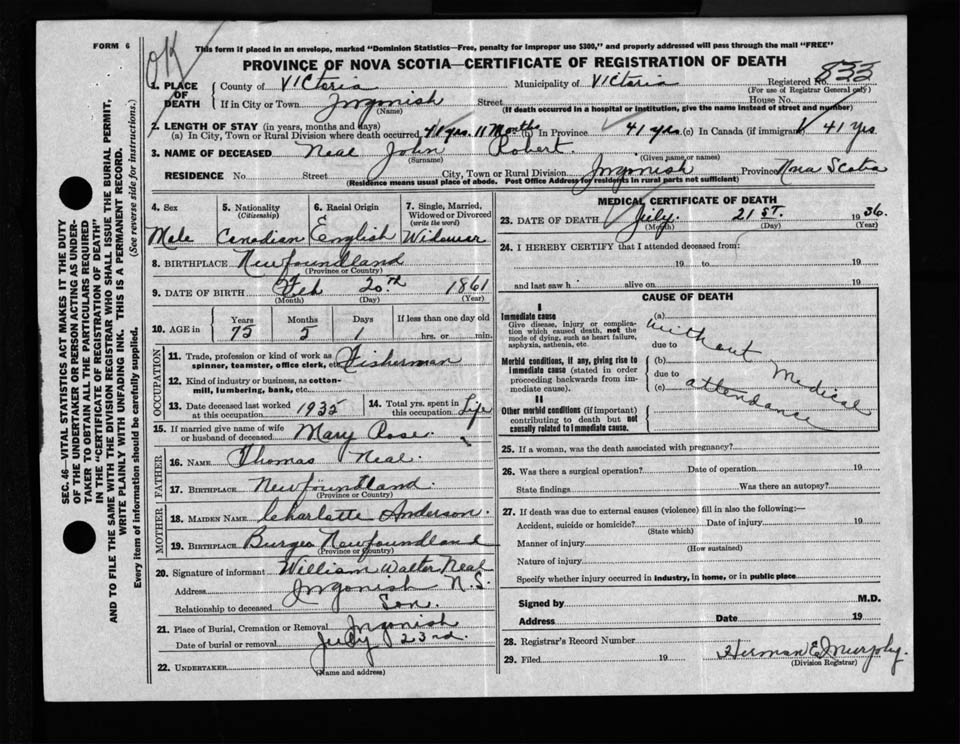 FORM 6
OK
This form if placed in an envelope, marked "Dominion Statistics—Free, penalty for improper use $300," and properly addressed will pass through the mail "FREE"
PROVINCE OF NOVA SCOTIA—CERTIFICATE OF REGISTRATION OF DEATH
1. PLACE OF DEATH
County of Victoria Municipality of Victoria Registered No. 833
(For use of Registrar General only)
If in City or Town Ingonish Street House No.
(Name) (If death occurred in a hospital or institution, give the name instead of street and number)
2. LENGTH OF STAY (in years, months and days)
(a) In City, Town or Rural Division where death occurred 41 yrs. 11 Months (b) In Province 41 yrs (c) In Canada (if immigrant) 41 yrs
3. NAME OF DECEASED Neal John Robert.
(Surname) (Given name or names)
RESIDENCE No. Street City, Town or Rural Division Ingonish Province Nova Scotia
(Residence means usual place of abode. Post Office Address for residents in rural parts not sufficient)
4. Sex 5. Nationality (Citizenship) 6. Racial Origin 7. Single, Married, Widowed or Divorced (write the word)
Male Canadian English Widower
8. BIRTHPLACE Newfoundland
(Province or Country)
9. DATE OF BIRTH Feb 20th 1861
(Month) (Day) (Year)
10. AGE in Years Months Days If less than one day old
75 5 1 hrs. or min.
OCCUPATION
11. Trade, profession or kind of work as spinner, teamster, office clerk, etc. Fisherman
12. Kind of industry or business, as cotton-mill, lumbering, bank, etc.
13. Date deceased last worked at this occupation 1935 14. Total yrs. spent in this occupation Life
15. If married give name of wife or husband of deceased Mary Rose
FATHER
16. NAME Thomas Neal
17. BIRTHPLACE Newfoundland.
(Province or Country)
MOTHER
18. MAIDEN NAME Charlotte Anderson.
19. BIRTHPLACE Burgeo Newfoundland
(Province or Country)
20. Signature of informant William Walter Neal
Address Ingonish N.S.
Relationship to deceased Son.
21. Place of Burial, Cremation or Removal Ingonish
Date of burial or removal July 23rd.
22. UNDERTAKER
(Name and address)
MEDICAL CERTIFICATE OF DEATH
23. DATE OF DEATH July. 21st. 1936.
(Month) (Day) (Year)
24. I HEREBY CERTIFY that I attended deceased from:
19 to 19
and last saw h alive on 19
CAUSE OF DEATH
I
Immediate cause
Give disease, injury or complication which caused death, not the mode of dying, such as heart failure, asphyxia, asthenia, etc.
(a)
due to
Morbid conditions, if any, giving rise to immediate cause (stated in order proceeding backwards from immediate cause).
(b)
due to
(c)
Without Medical attendance
II
Other morbid conditions (if important) contributing to death but not causally related to immediate cause.
25. If a woman, was the death associated with pregnancy?
26. Was there a surgical operation? Date of operation 19
State findings Was there an autopsy?
27. If death was due to external causes (violence) fill in also the following:—
Accident, suicide or homicide? Date of injury 19
(State which)
Manner of injury
(How sustained)
Nature of injury
Specify whether injury occurred in industry, in home, or in public place
Signed by M.D.
Address Date 19
28. Registrar's Record Number
29. Filed 19 Herman E Murphy.
(Division Registrar)
SEC. 46—VITAL STATISTICS ACT MAKES IT THE DUTY
OF THE UNDERTAKER OR PERSON ACTING AS UNDER-
TAKER TO OBTAIN ALL THE PARTICULARS REQUIRED
IN THE "CERTIFICATE OF REGISTRATION OF DEATH"
AND TO FILE THE SAME WITH THE DIVISION REGISTRAR WHO SHALL ISSUE THE BURIAL PERMIT,
WRITE PLAINLY WITH UNFADING INK. THIS IS A PERMANENT RECORD.
Every item of information should be carefully supplied. (See reverse side for instructions.)